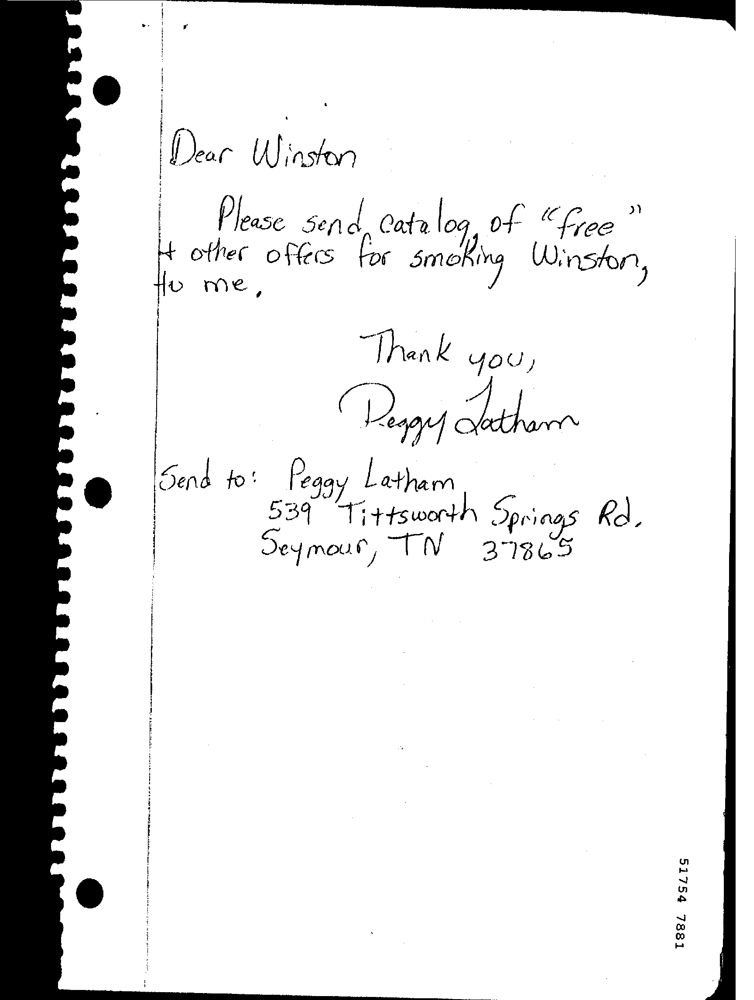 Dear Winston
Please send catalog, of "free"
+ other offers for smoking Winston,
to me.
Thank you,
Peggy Latham
Send to: Peggy Latham
539 Tittsworth Springs Rd.
Seymour, TN 37865
51754 7881